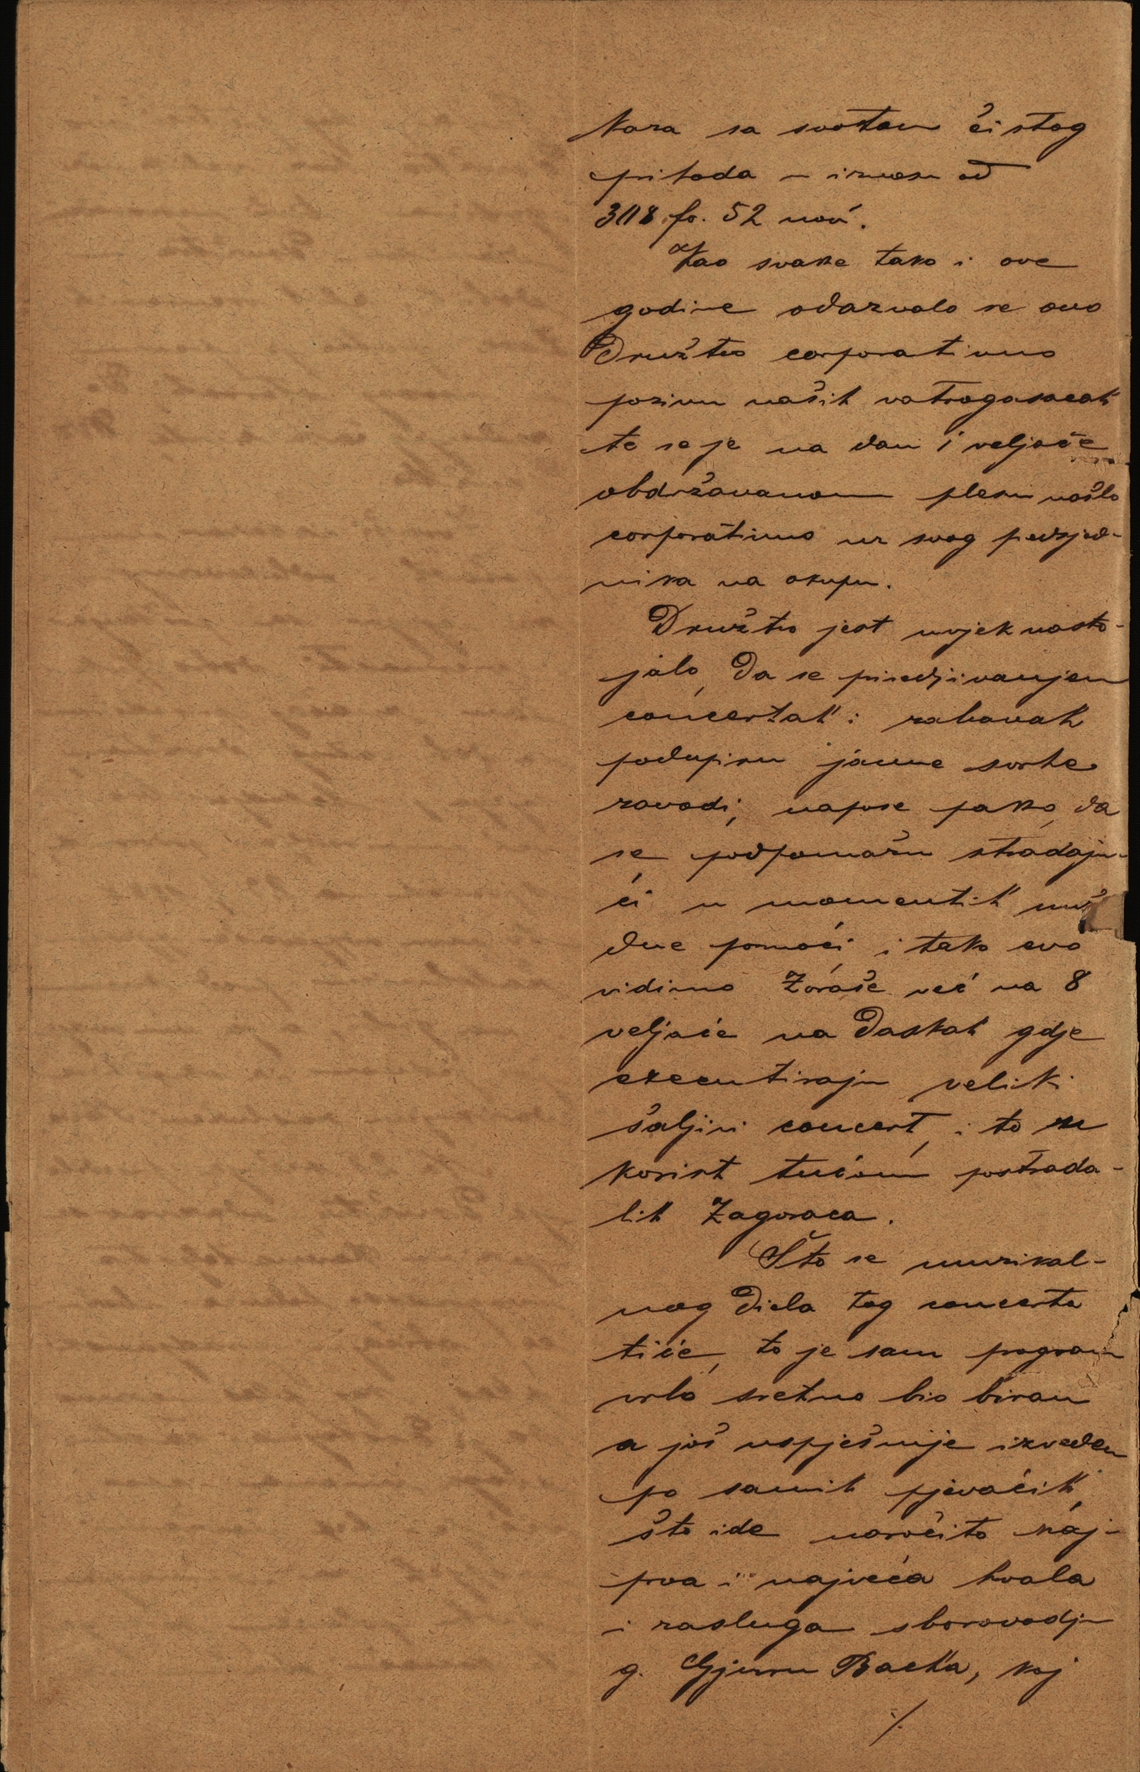 kaza sa svotom čistog
prihoda u iznosu od
308 fr. 52 novč.
Kao svake tako i ove
godine odazvalo se ovo
Družtvo corporativno
pozivu naših vatrogasacah
te se je na dan 1 veljače
obdržavanom plesu našlo
corporativno uz svog predsjed-
nika na okupu.
Družtvo jest uvjek nasto-
jalo, da se priredjivanjem
concertah i zabavah
podupiru javne svrhe
zavodi, napose pako, da
se podpomažu stradaju-
ći u momentih nuž
dne pomoći i tako evo
vidimo Zoraše već na 8
veljače na Daskah gdje
executiraju veliki
šaljivi concert, i to u
korist tučom postrada-
lih Zagoraca.
Što se muzikal-
nog Diela tog concerta
tiče, to je sam program
vrlo sretno bio biran
a još uspješnije izveden
po samih pjevačih
što ide naročito naj-
prva i najveća hvala
i zasluga sborovodju
g. Gjuru Bacha, koj
./.